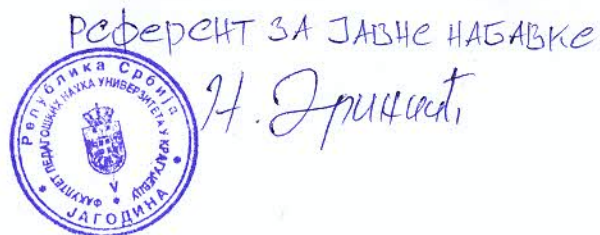 РЕФЕРЕНТ ЗА ЈАВНЕ НАБАВКЕ
Н.
Република Србија
ФАКУЛТЕТ ПЕДАГОШКИХ НАУКА УНИВЕРЗИТЕТА У КРАГУЈЕВЦУ
V
ЈАГОДИНА